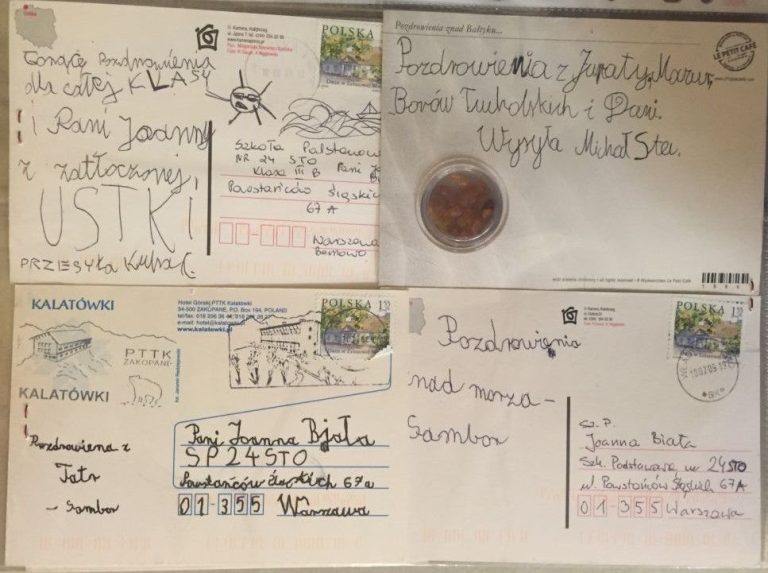 Gorące Pozdrowienia
dla całej KLASY
i Pani Joanny
z zatłoczonej,
USTKI
PRZESYŁA KUBA C.
POLSKA
Szkoła Podstawowa
NR 24 STO
Klasa III B Pani J
Powstańców Śląskich
67A
Warszawa
Bemowo
Pozdrowienia znad Bałtyku...
LE PETIT CAFÉ
Pozdrowienia z Juraty, Mazur,
Borów Tucholskich i Danii.
Wysyła Michał Ster.
KALATÓWKI
PTTK
ZAKOPANE
KALATÓWKI
Hotel Górski PTTK Kalatówki
34-500 ZAKOPANE, P.O. Box 194, POLAND
www.kalatowki.pl
POLSKA 1,30
Pozdrowiena z
Tatr
- Sambor
Pani Joanna Bjała
SP 24 STO
Powstańców Śląskich 67a
01-355 Warszawa
Pozdrowienia
nad morza -
Sambor
POLSKA 1,30
Sz. P.
Joanna Biała
Szk. Podstawowa nr 24 STO
ul. Powstańców Śląskich 67A
01-355 Warszawa